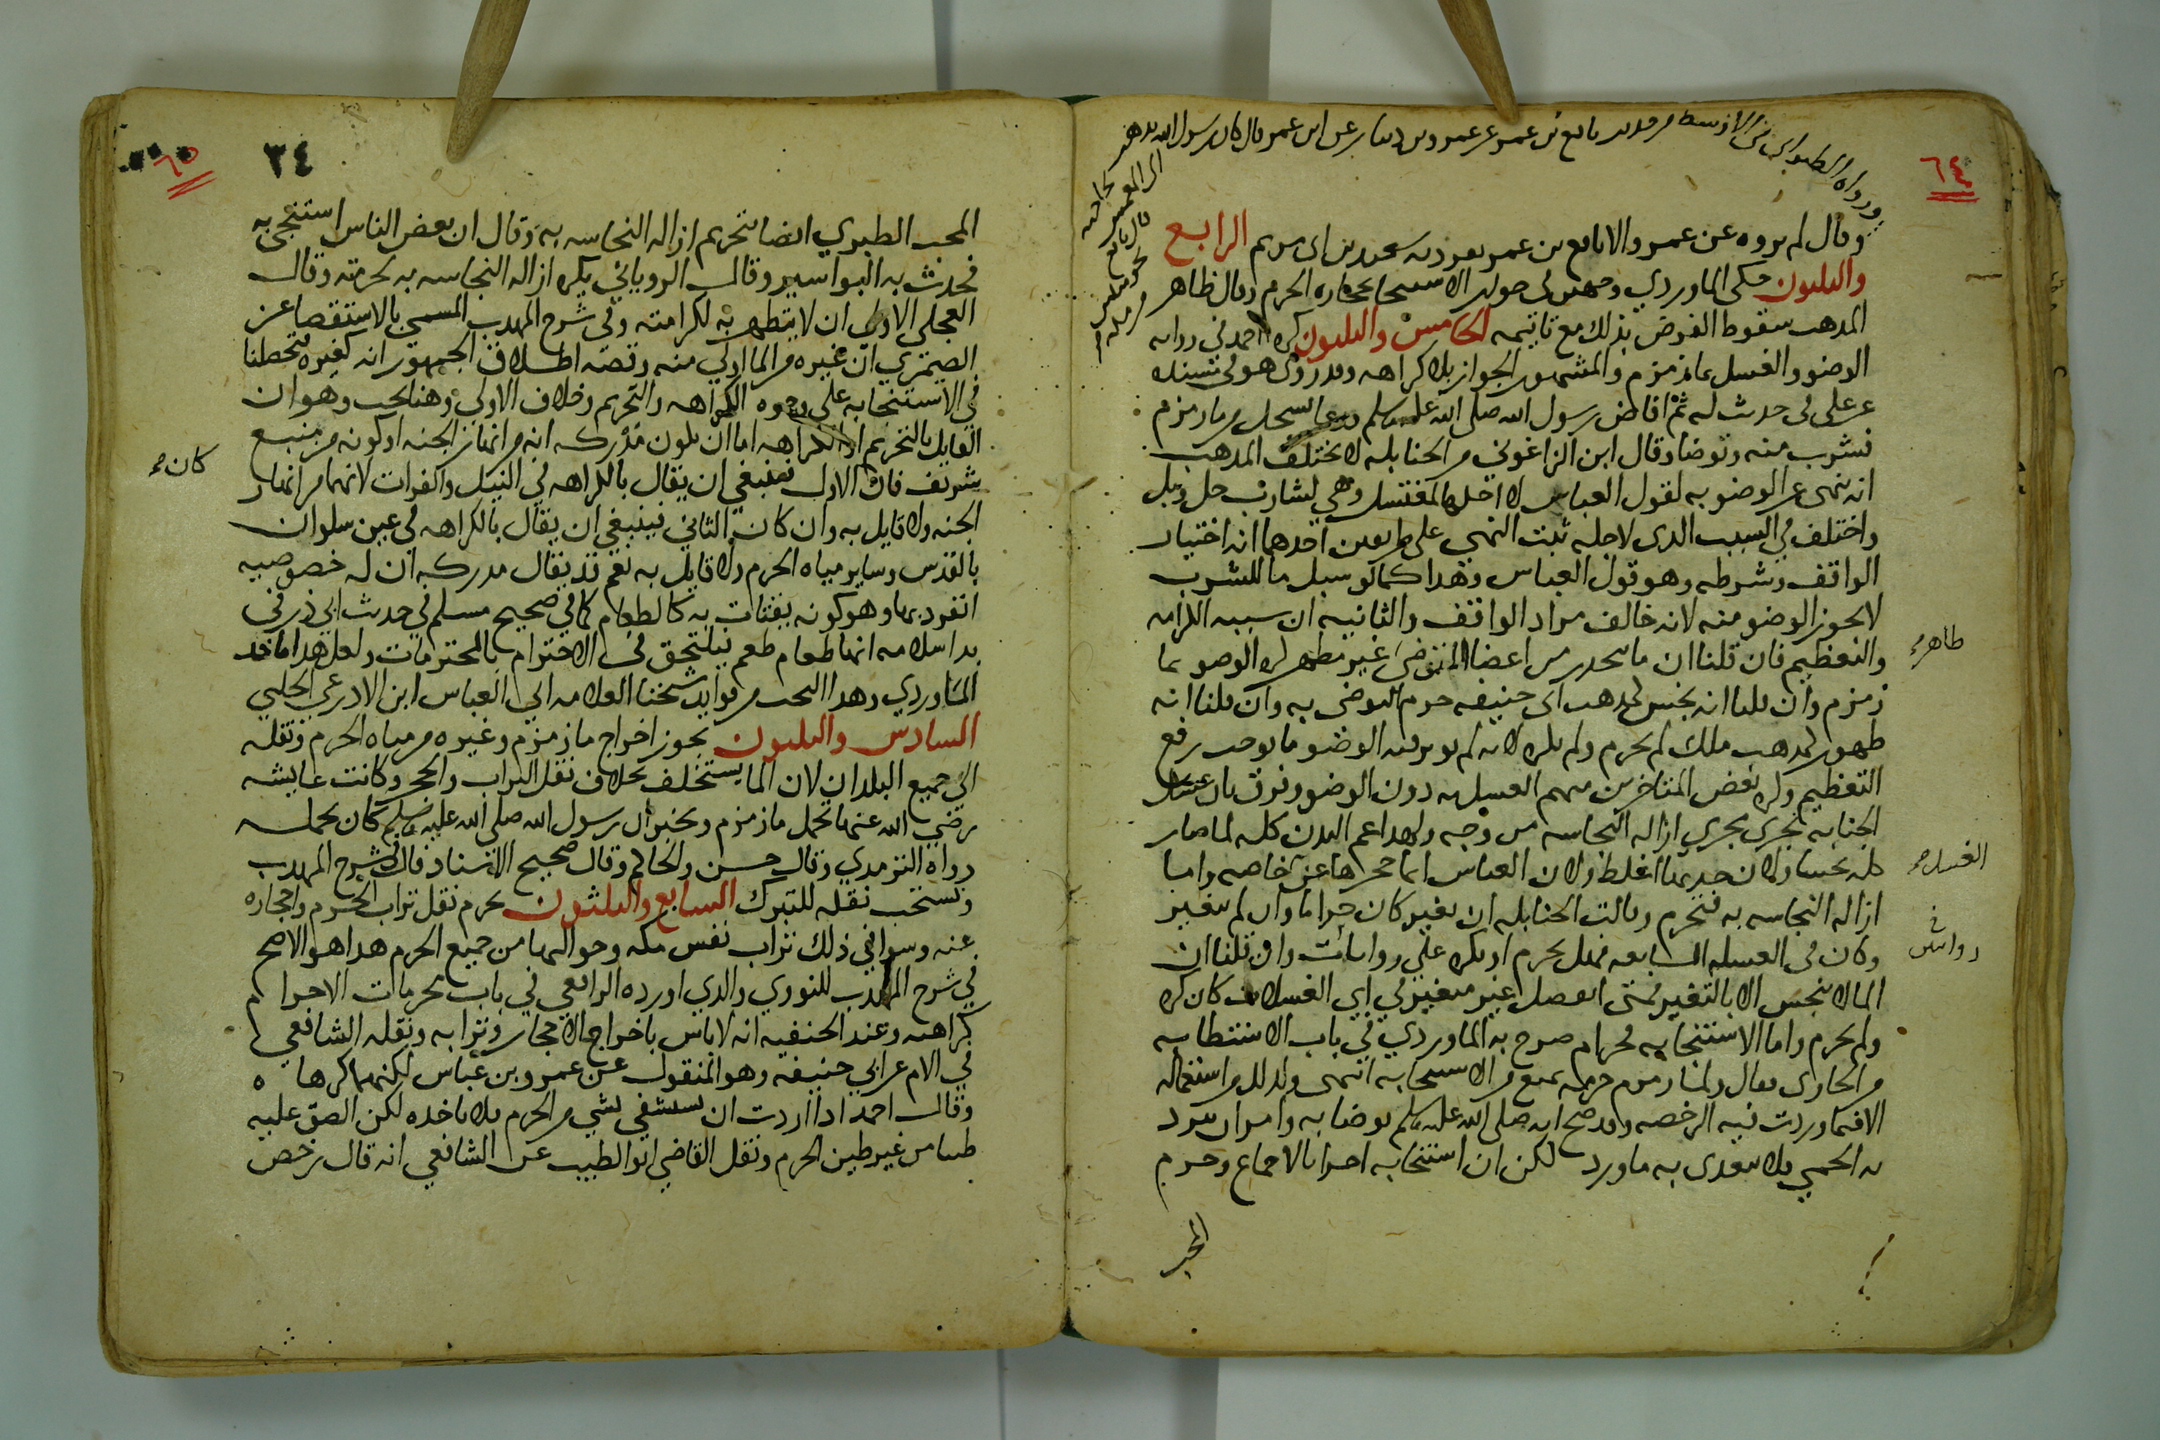 ٦٤
ورواه الطبراني في الاوسط من حديث نافع بن عمر عن عمرو بن دينار عن ابن عمر قال كان رسول الله يذهب
لحاجته
الى المغمس
قال نافع
نحو ميلين
من مكة
وقال لم يروه عن عمرو الا نافع بن عمر تفرد به سعيد بن ابي مريم الرابع
والثلثون حكى الماوردي وجهين في حصول الاستنجا بحجارة الحرم وقال ظاهر
المذهب سقوط الفرض بذلك مع تاثيمه الخامس والثلثون كره احمد في رواية
الوضو والغسل بما زمزم والمشهور الجواز بلا كراهه وقد روى هو في مسنده
عن علي في حديث له ثم افاض رسول الله صلى الله عليه وسلم فدعا بسجل من ما زمزم
فشرب منه وتوضا وقال ابن الزاغوني من الحنابله لا يختلف المذهب
انه نهى عن الوضو به لقول العباس لا احلها لمغتسل وهي لشارب حل وبل
واختلف في السبب الذي لاجله ثبت النهي على طريقين احدهما انه اختيار
الواقف وشرطه وهو قول العباس وهذا كما لو سبل ما للشرب
لا يجوز الوضو منه لانه خالف مراد الواقف والثانيه ان سببه الكرامه
والتعظيم فان قلنا ان ما ينحدر من اعضا المتوضي غير مطهر كره الوضو بما
طاهر
زمزم وان قلنا انه نجس كمذهب ابي حنيفه حرم التوضي به وان قلنا انه
طهور كمذهب ملك لم يحرم ولم يكره لانه لم يوثر فيه الوضو ما يوجب رفع
التعظيم وكره بعض المتاخرين منهم الغسل به دون الوضو وفرق بان غسل
الجنابه يجري مجرى ازاله النجاسه من وجه ولهذا عم البدن كله لما صار
كله نجسا ولان حدثها اغلظ ولان العباس انما حجرها عن خاصه واما
الغسل
ازاله النجاسه به فتحرم وقالت الحنابله ان تغير كان حراما وان لم يتغير
وكان في الغسله السابعه فهل يحرم او يكره على روايات وان قلنا ان
روايتين
الما لا ينجس الا بالتغير فمتى انفصل غير متغير في اي الغسلات كان كره
ولم يحرم واما الاستنجا به فحرام صرح به الماوردي في باب الاستطابه
من الحاوى فقال ولما زمزم حرمه تمنع من الاستنجا به انتهى ولذلك من استعماله
الا فيما وردت فيه الرخصه وقد صح انه صلى الله عليه وسلم توضا به وامر ان تبرد
به الحمى فلا يتعدى به ما ورد لكن ان استنجا به اجزا بالاجماع وحرم
المحب
٦٥
٣٤
المحب الطبري ايضا بتحريم ازاله النجاسه به وقال ان بعض الناس استنجى به
فحدث به البواسير وقال الروياني يكره ازاله النجاسه به لحرمته وقال
العجلي الاولى ان لا يتطهر به لكرامته وفي شرح المهذب المسمى بالاستقصا عن
الصيمري ان غيره من الما اولى منه وقضيه اطلاق الجمهور انه كغيره فتحصلنا
في الاستنجا به على وجوه الكراهه والتحريم وخلاف الاولى وهنا بحث وهو ان
القايل بالتحريم او الكراهه اما ان يكون مدركه انه من انهار الجنه او كونه من منبع
شريف فان الاول فينبغي ان يقال بالكراهه في النيل والفرات لانهما من انهار
كان
الجنه ولا قايل به وان كان الثاني فينبغي ان يقال بالكراهه في عين سلوان
بالقدس وساير مياه الحرم ولا قايل به نعم قد يقال مدركه ان له خصوصيه
انفرد بها وهو كونه يقتات به كالطعام كما في صحيح مسلم في حديث ابي ذر في
بدا اسلامه انها طعام طعم فيلتحق في الاحترام بالمحترمات ولعل هذا ماخذ
الماوردي وهذا البحث من فوايد شيخنا العلامه ابي العباس ابن الاذرعي الحلبي
السادس والثلثون يجوز اخراج ما زمزم وغيره من مياه الحرم ونقله
الى جميع البلدان لان الما يستخلف بخلاف نقل التراب والحجر وكانت عايشه
رضي الله عنها تحمل ما زمزم وتخبر ان رسول الله صلى الله عليه وسلم كان يحمله
رواه الترمذي وقال حسن والحاكم وقال صحيح الاسناد قال في شرح المهذب
ونستحب نقله للتبرك السابع والثلثون يحرم نقل تراب الحرم واحجاره
عنه وسوا في ذلك تراب نفس مكه وحواليها من جميع الحرم هذا هو الاصح
في شرح المهذب للنووي والذي اورده الرافعي في باب محرمات الاحرام
كراهته وعند الحنفيه انه لا باس باخراج الاحجار وترابه ونقله الشافعي
في الام عن ابي حنيفه وهو المنقول عن عمر وبن عباس لكنهما كرهاه
وقال احمد اذا اردت ان تستشفي بشي من الحرم فلا تاخذه لكن الصق عليه
طينا من غير طين الحرم ونقل القاضي ابو الطيب عن الشافعي انه قال رخص